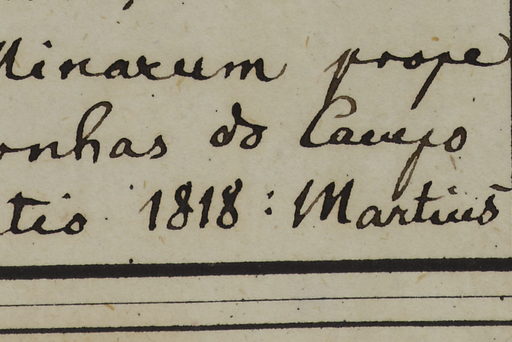 Minarum prope
onhas do Campo
tio 1818: Martius